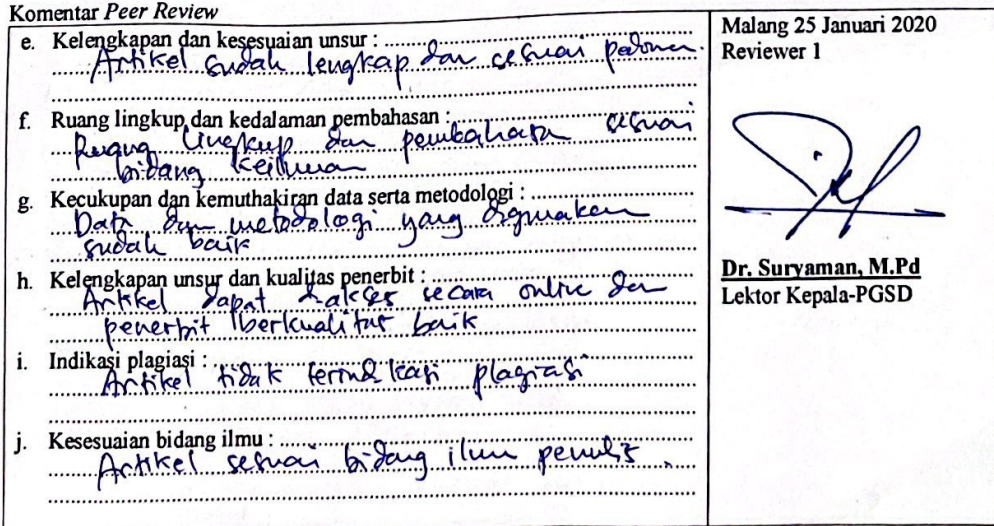 Komentar Peer Review
e. Kelengkapan dan kesesuaian unsur :
Artikel sudah lengkap dan sesuai pedoman.
f. Ruang lingkup dan kedalaman pembahasan :
Ruang lingkup dan pembahasan sesuai
bidang keilmuan
g. Kecukupan dan kemuthakiran data serta metodologi :
Data dan metodologi yang digunakan
sudah baik
h. Kelengkapan unsur dan kualitas penerbit :
Artikel dapat diakses secara online dan
penerbit berkualitas baik
i. Indikasi plagiasi :
Artikel tidak terindikasi plagiasi
j. Kesesuaian bidang ilmu :
Artikel sesuai bidang ilmu penulis.
Malang 25 Januari 2020
Reviewer 1
Dr. Suryaman, M.Pd
Lektor Kepala-PGSD